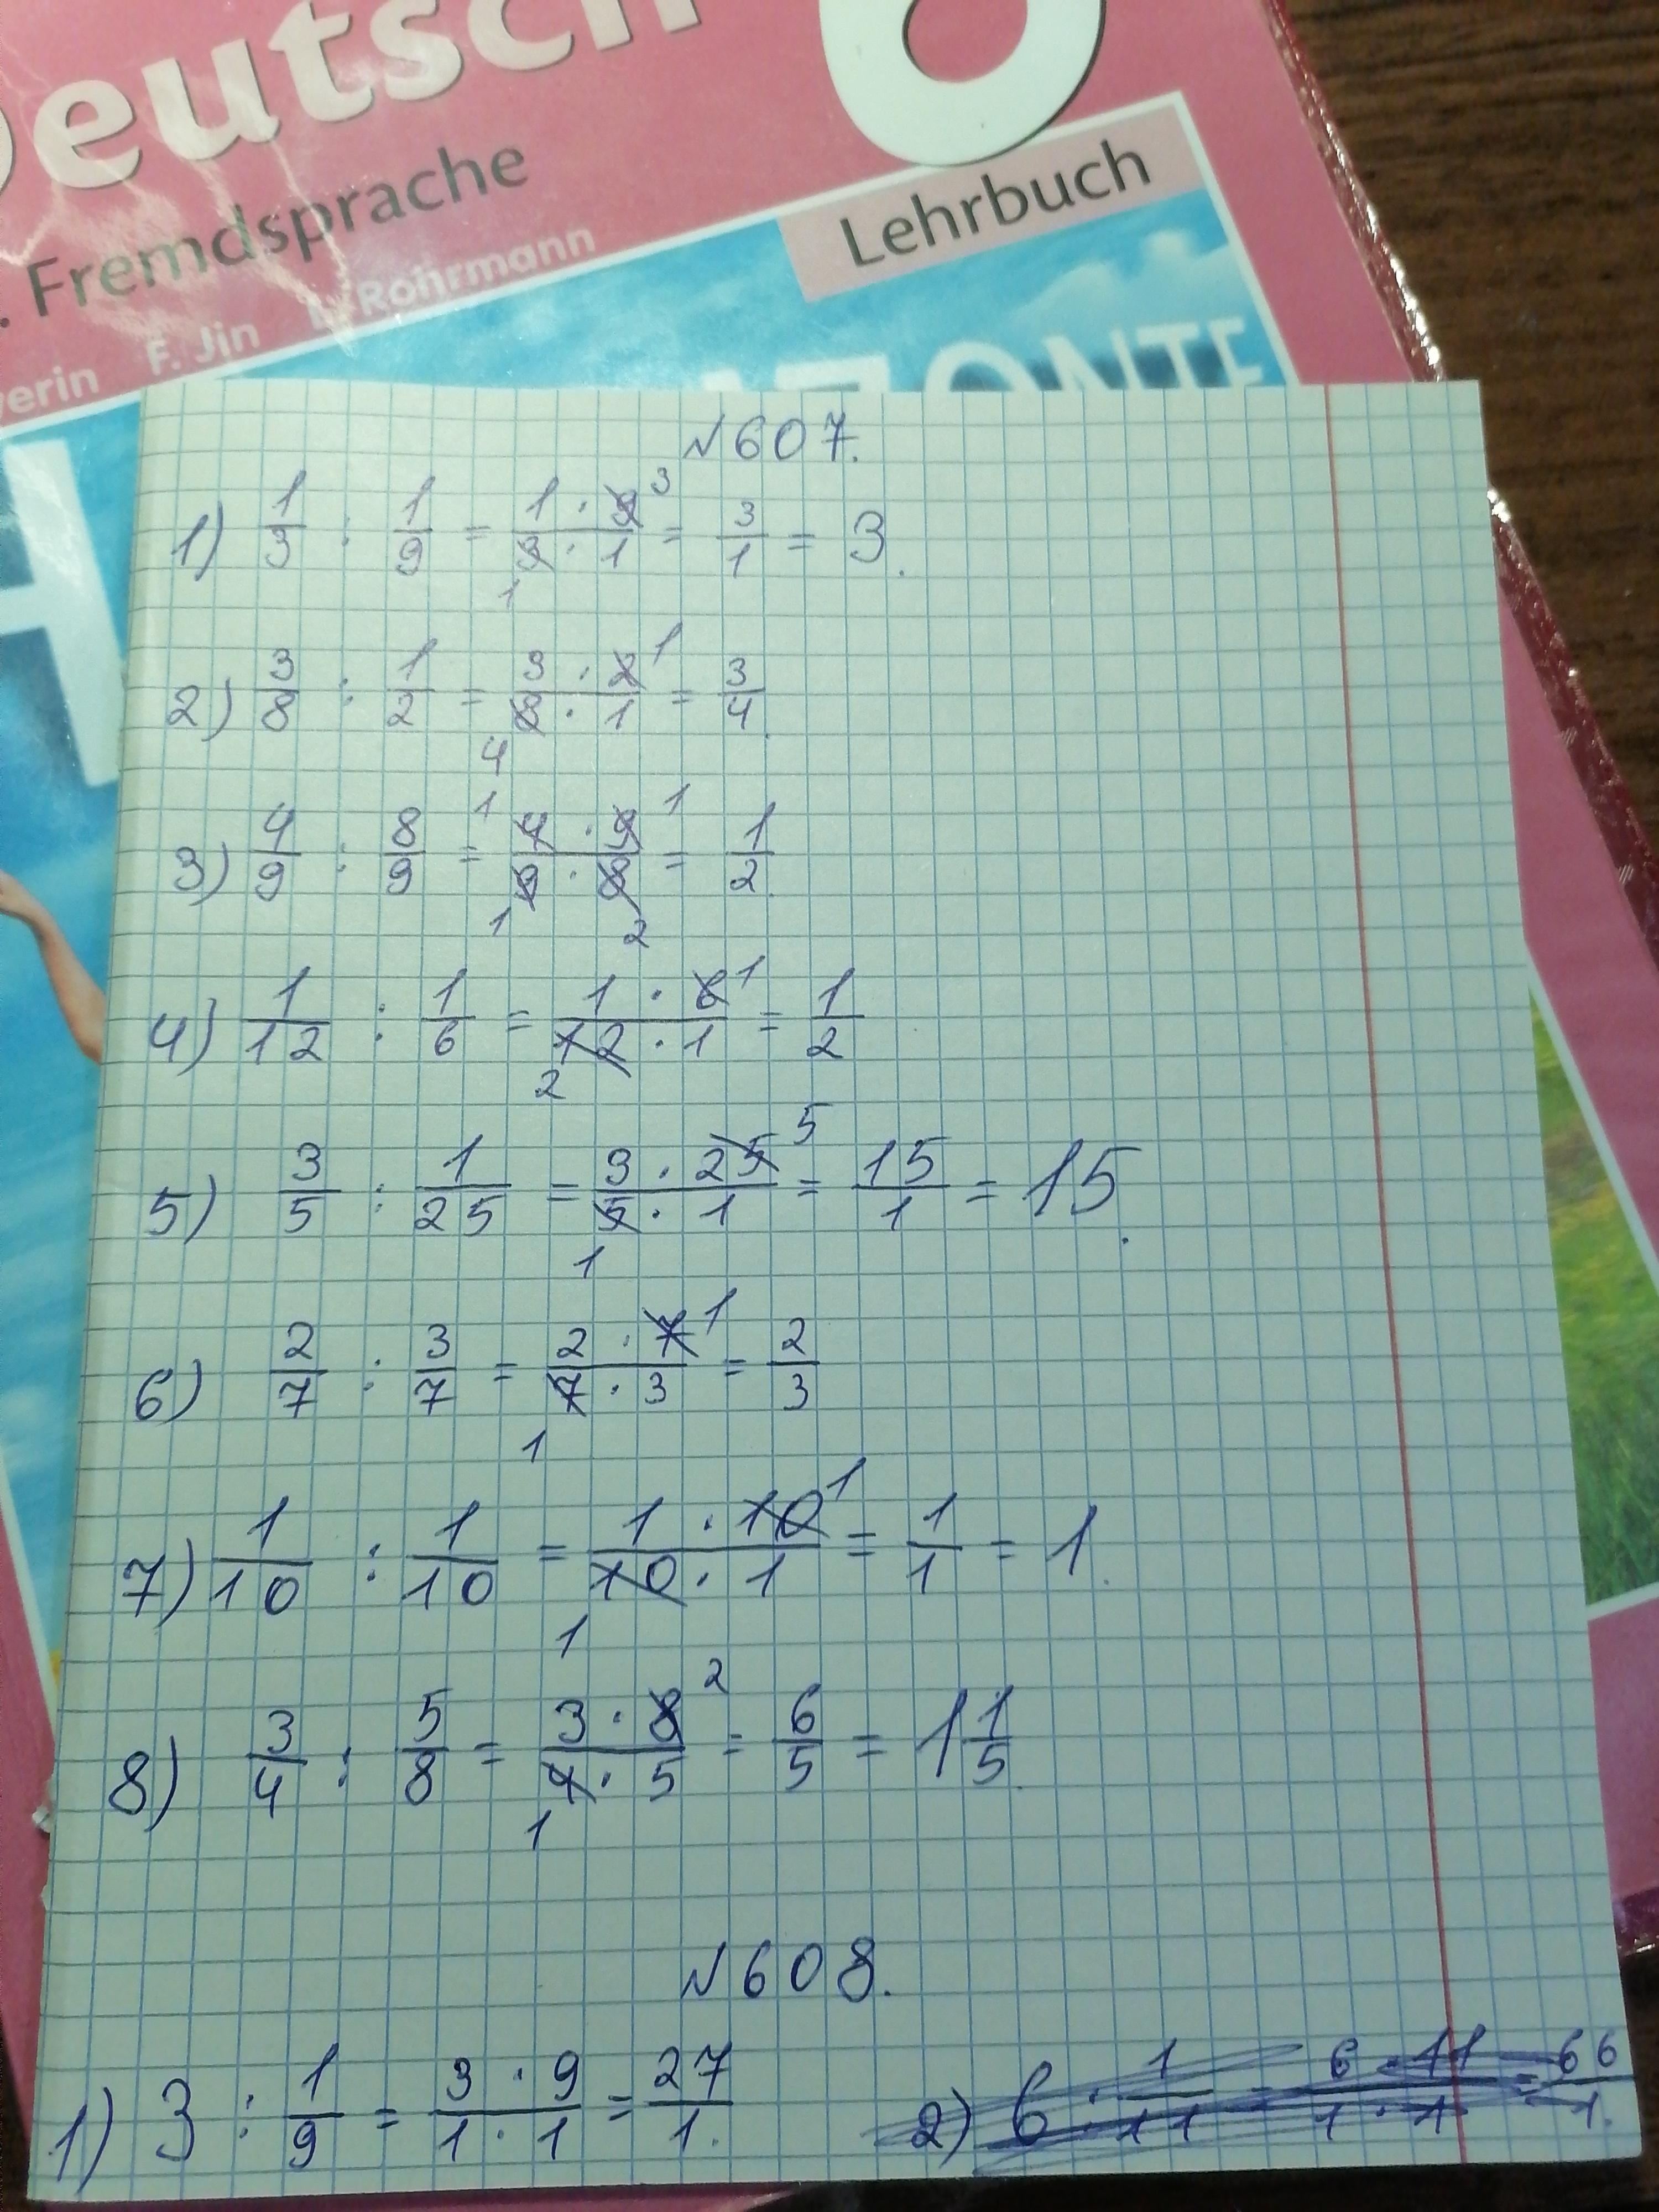 Deutsch 6
. Fremdsprache
Lehrbuch
verin F. Jin L. Rohrmann
№607.
1) 1/3 : 1/9 = 1 · 9 / 3 · 1 = 3/1 = 3.
2) 3/8 : 1/2 = 3 · 2 / 8 · 1 = 3/4.
3) 4/9 : 8/9 = 4 · 9 / 9 · 8 = 1/2.
4) 1/12 : 1/6 = 1 · 6 / 12 · 1 = 1/2
5) 3/5 : 1/25 = 3 · 25 / 5 · 1 = 15/1 = 15.
6) 2/7 : 3/7 = 2 · 7 / 7 · 3 = 2/3
7) 1/10 : 1/10 = 1 · 10 / 10 · 1 = 1/1 = 1.
8) 3/4 : 5/8 = 3 · 8 / 4 · 5 = 6/5 = 1 1/5.
№608.
1) 3 : 1/9 = 3 · 9 / 1 · 1 = 27/1. 2) 6 : 1/11 = 6 · 11 / 1 · 1 = 66/1.